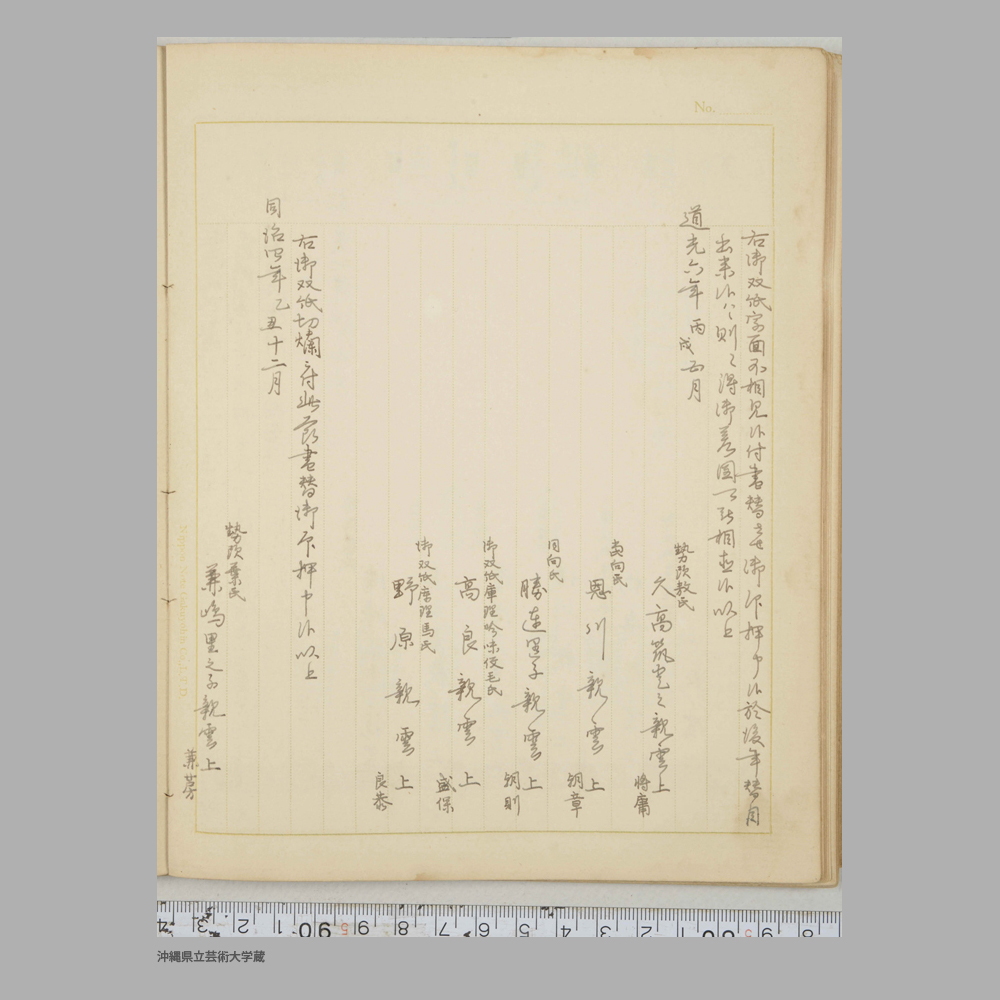 No.
右御双紙字面不相見候付書替させ御印押申候於後年替目
出来候ハヽ則々得御差図可致相直候以上
道光六年丙戌正月
勢頭敷氏
久高筑登之親雲上
将庸
向氏
恩川親雲上
朝章
同向氏
勝連里之子親雲上
朝則
御双紙庫理吟味役毛氏
高良親雲上
盛保
御双紙庫理馬氏
野原親雲上
良恭
右御双紙切爛付此節書替御印押申候以上
同治四年乙丑十二月
勢頭葉氏
兼嶋里之子親雲上
兼芳
沖縄県立芸術大学蔵